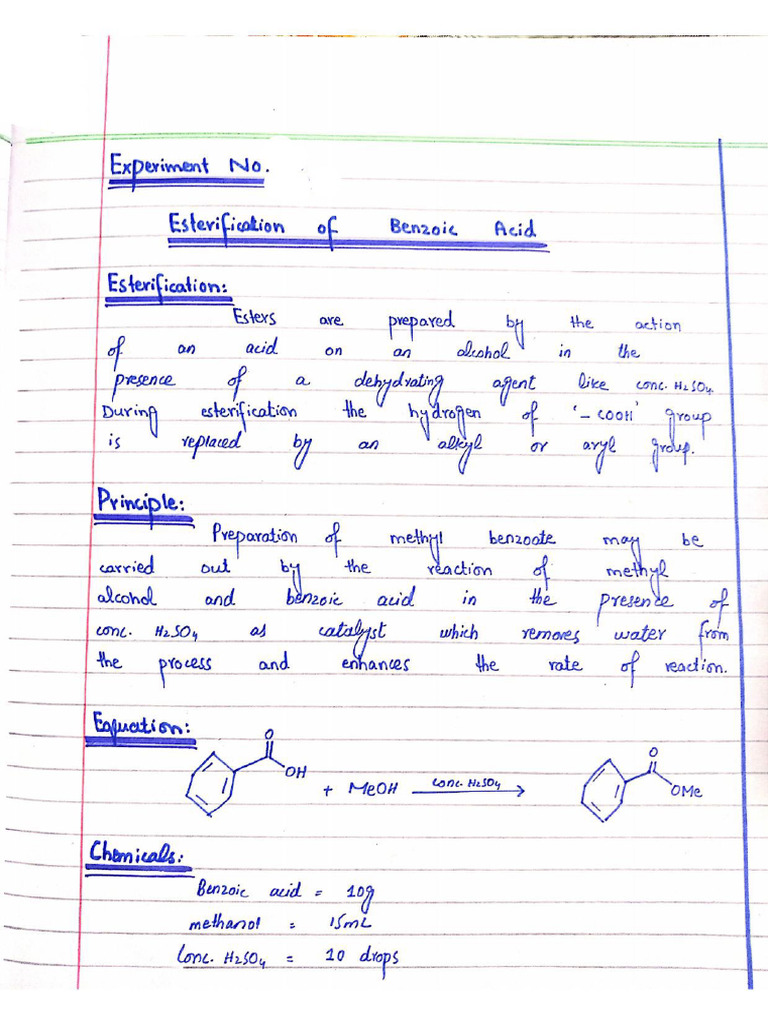 Experiment No.
Esterification of Benzoic Acid
Esterification:
Esters are prepared by the action
of an acid on an alcohol in the
presence of a dehydrating agent like conc. H2SO4.
During esterification the hydrogen of '-COOH' group
is replaced by an alkyl or aryl group.
Principle:
Preparation of methyl benzoate may be
carried out by the reaction of methyl
alcohol and benzoic acid in the presence of
conc. H2SO4 as catalyst which removes water from
the process and enhances the rate of reaction.
Equation:
O OH + MeOH conc. H2SO4 O OMe
Chemicals:
Benzoic acid = 10g
methanol = 15mL
Conc. H2SO4 = 10 drops